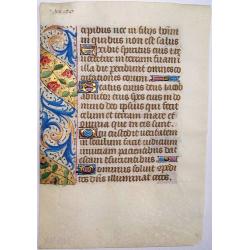 cipibus nec in filiis homi
in quibus non est salus
Exibit spiritus eius et re
vertetur in terram suam
illa die peribunt omnes co
gitationes eorum
Beatus cuius deus iacob
adiutor eius spes eius in do
mino deo ipsius qui fecit
celum et terram mare et
omnia que in eis sunt
Qui custodit veritatem
in seculum facit iudicium
iniuriam pacientibus dat
escam esurientibus
Dominus soluit
dominus illuminat cecos